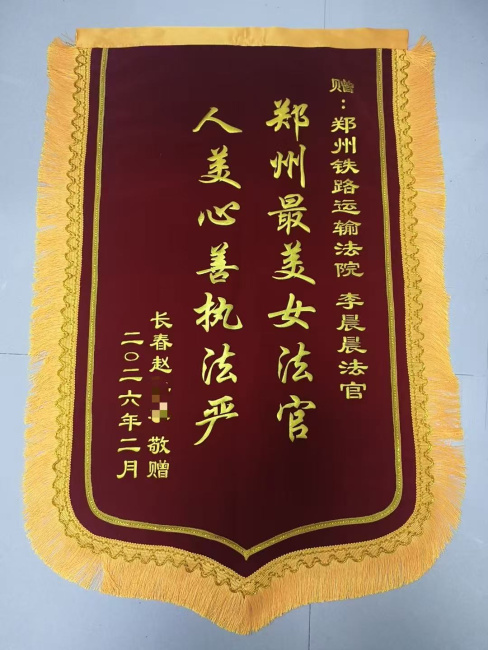 赠：郑州铁路运输法院 李晨晨法官
郑州最美女法官
人美心善执法严
长春赵 敬赠
二〇二六年二月